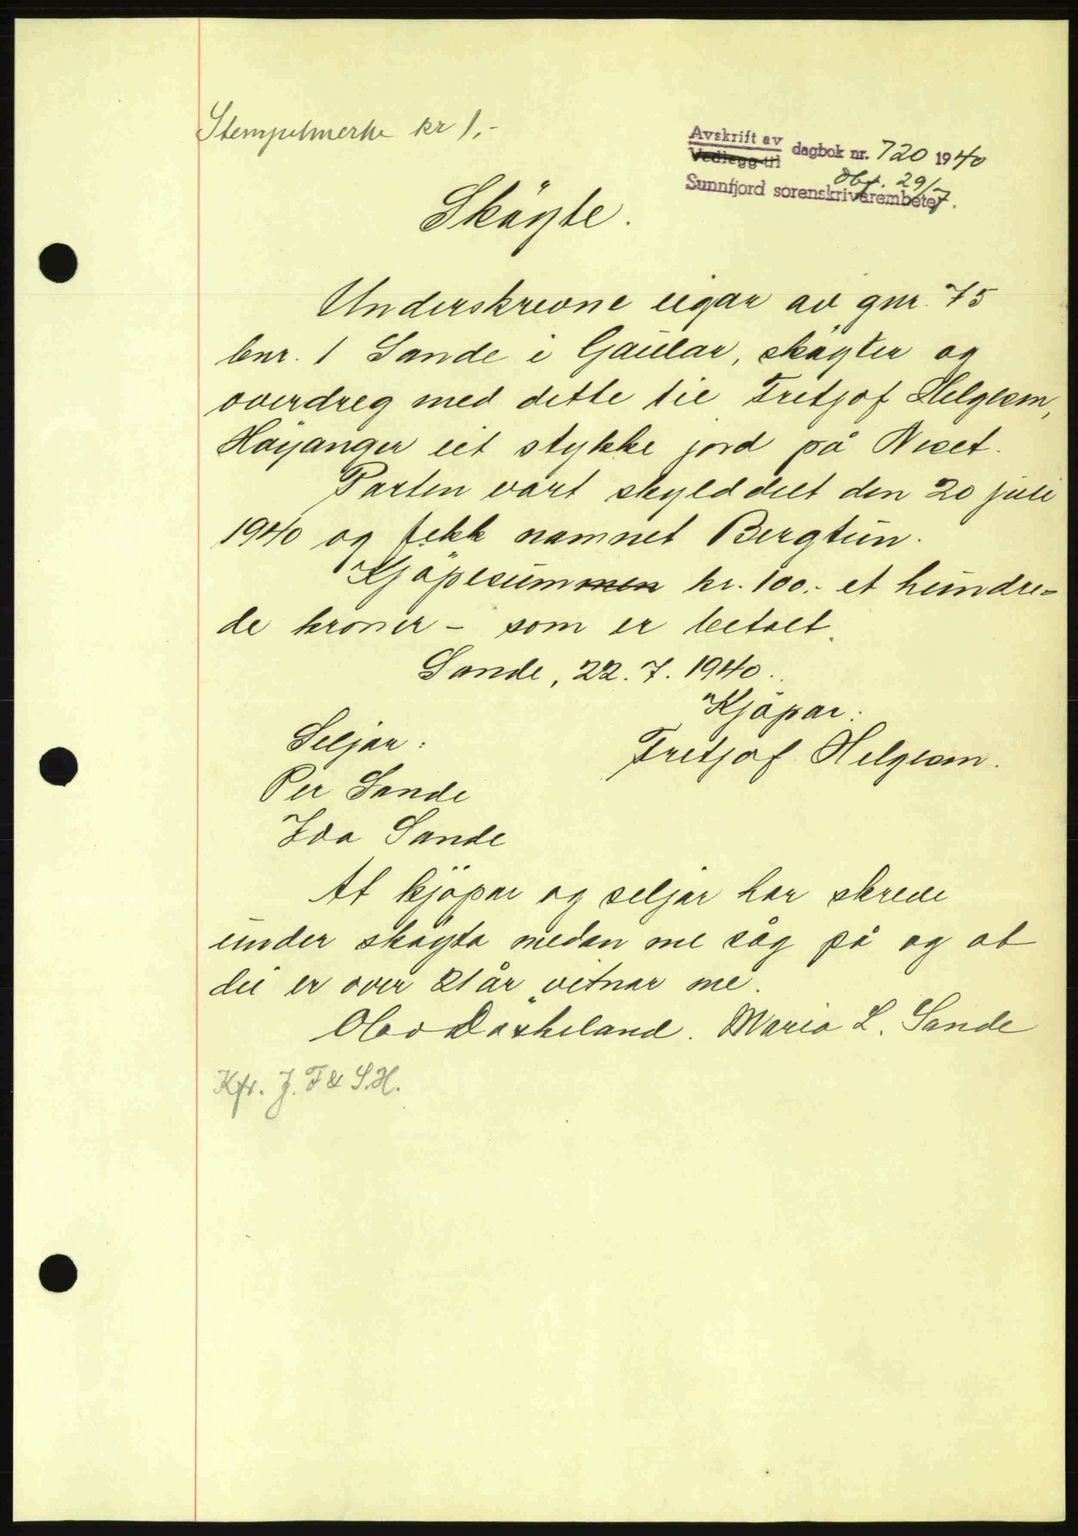 Stempelmerke kr 1,-
Avskrift av
Vedlegg til dagbok nr. 720 1940
Dbf. 29/-7.
Sunnfjord sorenskrivarembetet
Sköyte.
Underskrevne eigar av gnr. 75
bnr. 1 Sande i Gaular, sköyter og
overdreg med dette til Fretjof Helgesen,
Höyanger eit stykke jord på Neset.
Parten vart skylddelt den 20 juli
1940 og fekk namnet Bergtun.
Kjöpesummen kr. 100.- et hundre=
de kroner - som er betalt.
Sande, 22. 7. 1940.
Kjöpar:
Seljar:
Fretjof Helgesen.
Per Sande
Ida Sande
At kjöpar og seljar har skreve
under sköyta medan me såg på og at
dei er over 21 år vitnar me.
Olav Döskeland. Maria L. Sande
Kfr. J. F & S.H.